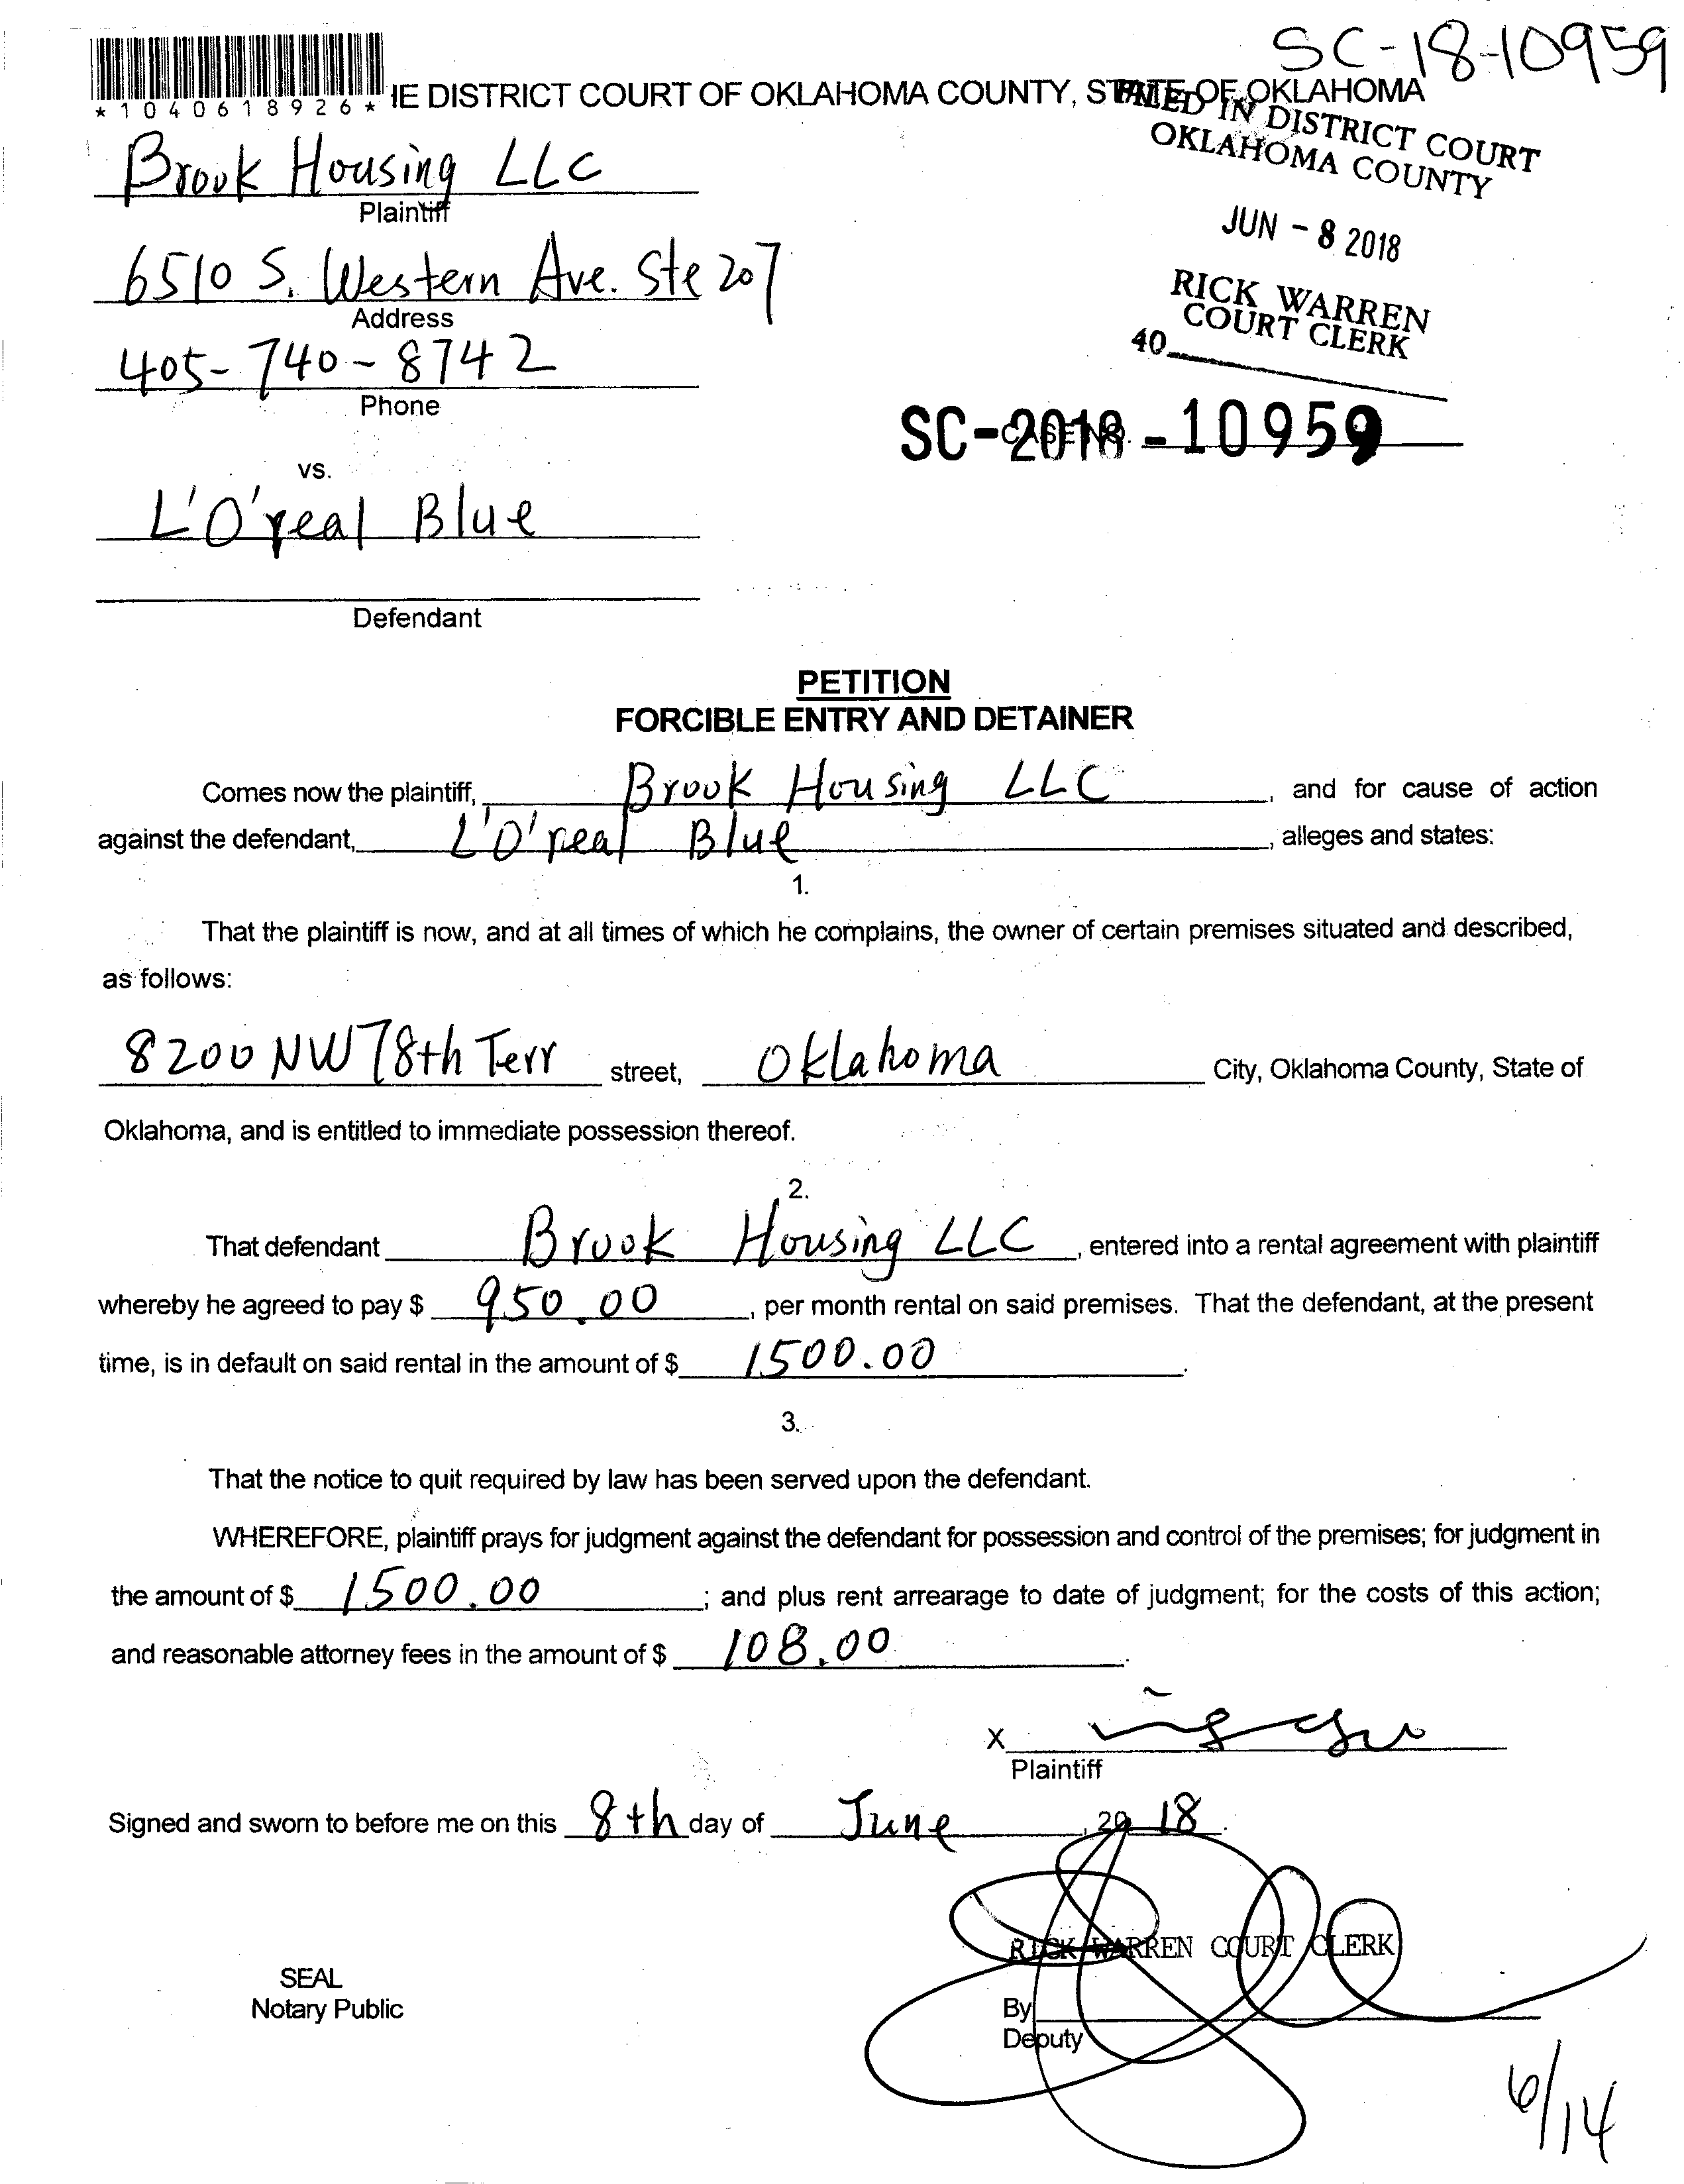 SC-18-10959
*1040618926*
IE DISTRICT COURT OF OKLAHOMA COUNTY, STATE OF OKLAHOMA
FILED IN DISTRICT COURT
OKLAHOMA COUNTY
JUN - 8 2018
RICK WARREN
COURT CLERK
40
Brook Housing LLC
Plaintiff
6510 S. Western Ave. Ste 207
Address
405-740-8742
Phone
SC-2018-10959
CASE NO.
vs.
L'O'real Blue
Defendant
PETITION
FORCIBLE ENTRY AND DETAINER
Comes now the plaintiff, Brook Housing LLC, and for cause of action
against the defendant, L'O'real Blue, alleges and states:
1.
That the plaintiff is now, and at all times of which he complains, the owner of certain premises situated and described,
as follows:
8200 NW 78th Terr street, Oklahoma City, Oklahoma County, State of
Oklahoma, and is entitled to immediate possession thereof.
2.
That defendant Brook Housing LLC, entered into a rental agreement with plaintiff
whereby he agreed to pay $ 950.00, per month rental on said premises. That the defendant, at the present
time, is in default on said rental in the amount of $ 1500.00.
3.
That the notice to quit required by law has been served upon the defendant.
WHEREFORE, plaintiff prays for judgment against the defendant for possession and control of the premises; for judgment in
the amount of $ 1500.00; and plus rent arrearage to date of judgment; for the costs of this action;
and reasonable attorney fees in the amount of $ 108.00.
X
Plaintiff
Signed and sworn to before me on this 8th day of June, 2018.
RICK WARREN COURT CLERK
SEAL
Notary Public
By
Deputy
6/14